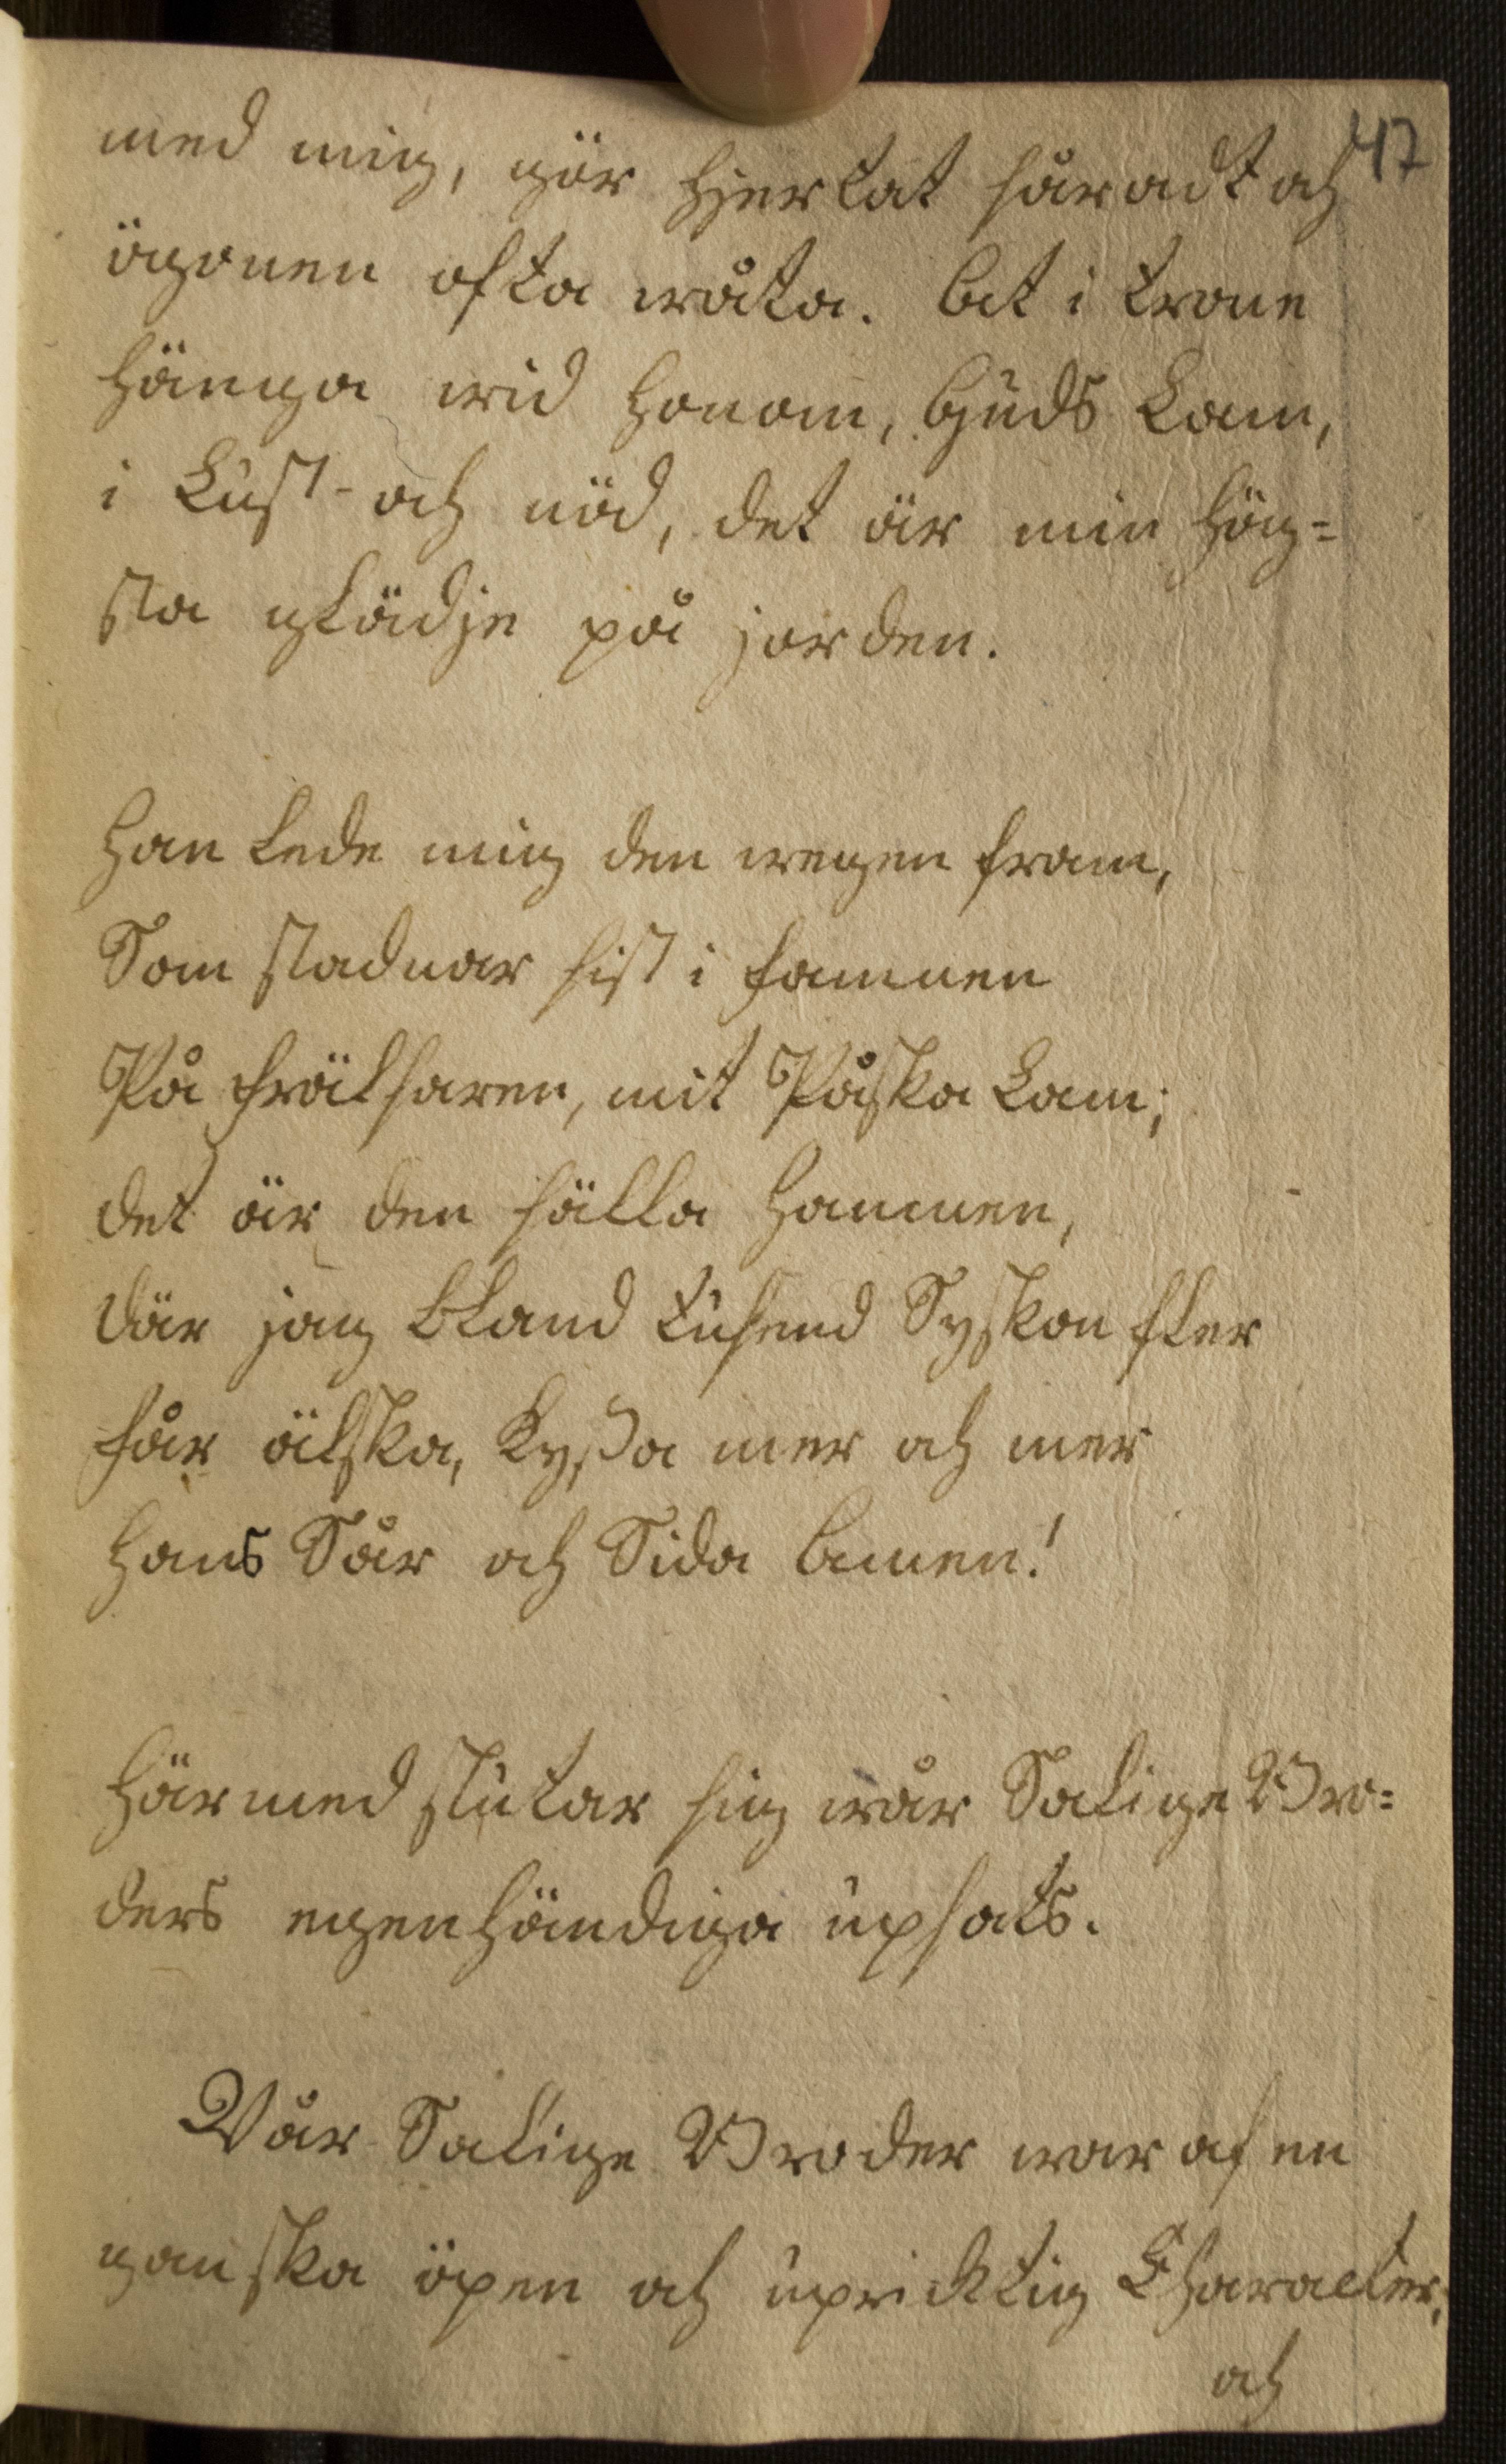 47
med mig, gör hjertat såradt och
ögonen ofta wåta. At i trone
hänga wid honom, Guds Lam,
i Lust- och nöd, det är min hög=
sta glädje på jorden.
Han lede mig den wegen fram,
Som stadnar sist i famnen
På frälsaren, mit Påska Lam;
det är den sälla hamnen,
där jag bland tusend Syskon fler
får älska, kyßa mer och mer
Hans Sår och Sida Amen!
Härmed slutar sig wår Salige Bro=
ders egenhändiga upsats.
Vår Salige Broder war af en
ganska öpen och uprichtig Character,
och